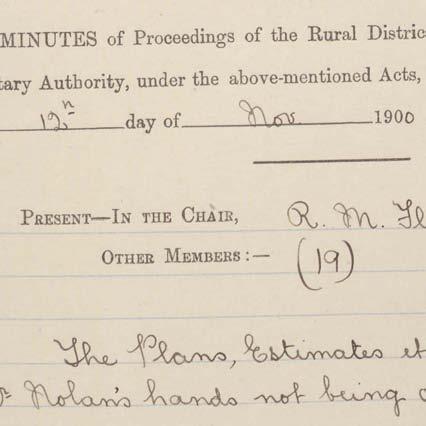 MINUTES of Proceedings of the Rural Distric
tary Authority, under the above-mentioned Acts,
12n day of Nov 1900
PRESENT—IN THE CHAIR, R. M. Fl
OTHER MEMBERS:— (19)
The Plans, Estimates et
Nolan's hands not being